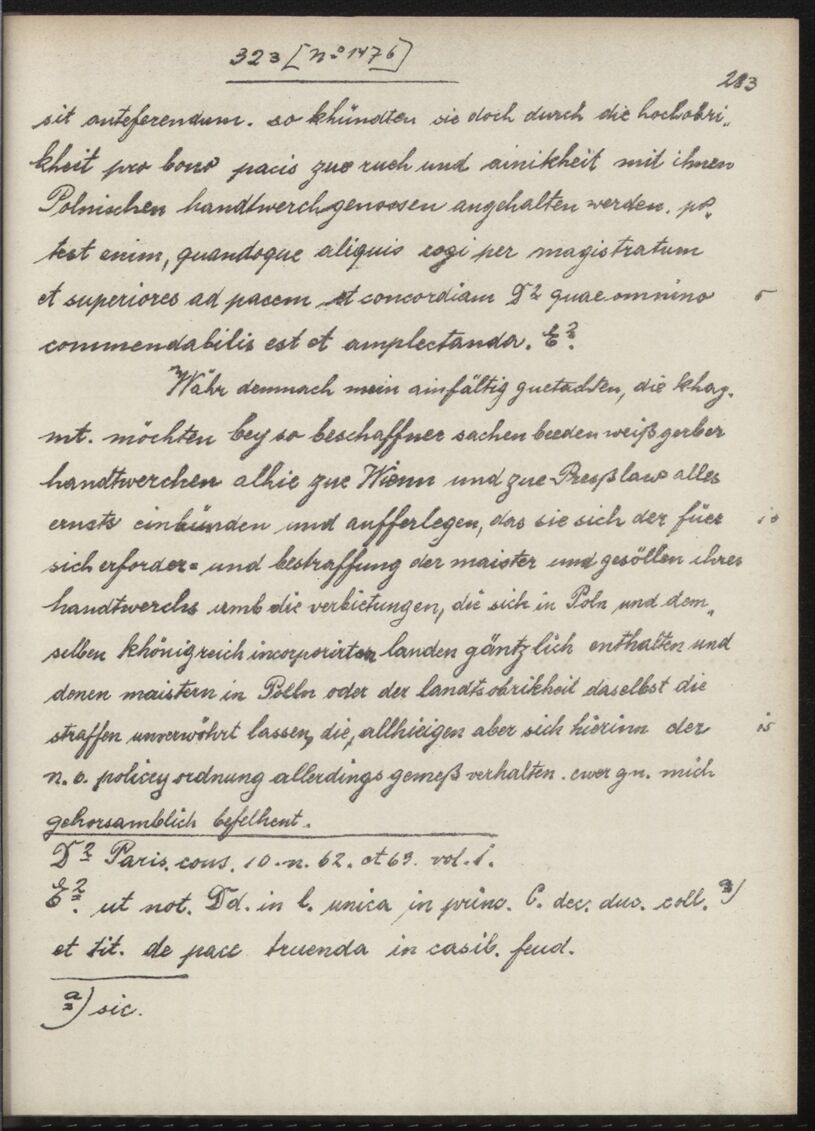 323 [nº 1476]
283
sit anteferendum. so khündten sie doch durch die hochobri„
kheit pro bono pacis zue ruch und ainikheit mit ihnen
Polnischen handtwerchgenossen angehalten werden. po„
test enim, quandoque aliquis cogi per magistratum
et superiores ad pacem et concordiam D2 quae omnino 5
commendabilis est et amplectanda. E2.
Währ demnach mein ainfältig guetachten, die khay.
mt. möchten bey so beschaffner sachen beeden weißgerber
handtwerchen alhie zue Wienn und zue Presßlaw alles
ernsts einbünden und aufferlegen, das sie sich der füer 10
sich erforder= und bestraffung der maister und gesöllen ihres
handtwerchs umb die verbietungen, die sich in Poln und dem„
selben khönigreich incorporirten landen gäntzlich enthalten und
denen maistern in Polln oder der landtsobrikheit daselbst die
straffen unverwöhrt lassen, die allhieigen aber sich hierinn der 15
n. ö. policey ordnung allerdings gemeß verhalten. ewer gn. mich
gehorsamblich befelhent.
D2 Paris. cons. 10. n. 62. et 63. vol. 1.
E2. ut not. Dd. in l. unica in princ. C. dec. duo. coll. a)
et tit. de pace truenda in casib. feud.
a) sic.